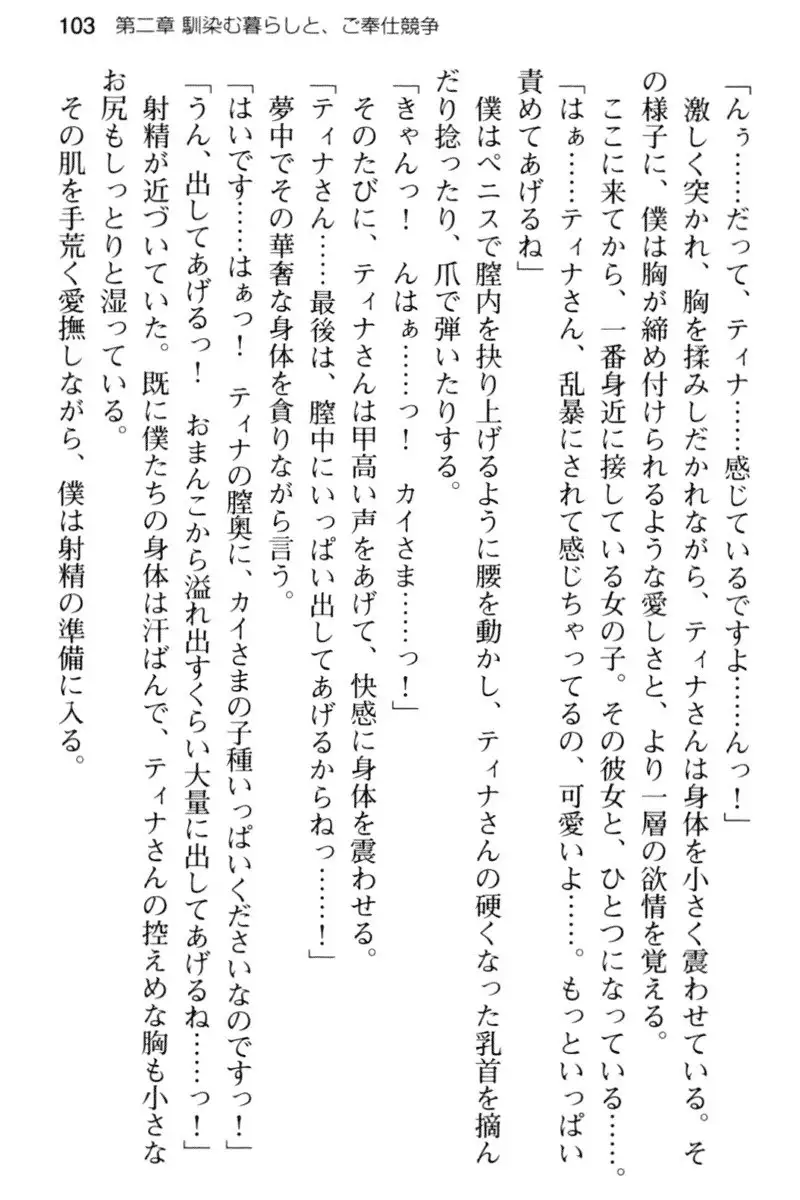 103 第二章 馴染む暮らしと、ご奉仕競争
「んぅ……だって、ティナ……感じているですよ……んっ！」
激しく突かれ、胸を揉みしだかれながら、ティナさんは身体を小さく震わせている。そ
の様子に、僕は胸が締め付けられるような愛しさと、より一層の欲情を覚える。
ここに来てから、一番身近に接している女の子。その彼女と、ひとつになっている……。
「はぁ……ティナさん、乱暴にされて感じちゃってるの、可愛いよ……。もっといっぱい
責めてあげるね」
僕はペニスで膣内を抉り上げるように腰を動かし、ティナさんの硬くなった乳首を摘ん
だり捻ったり、爪で弾いたりする。
「きゃんっ！　んはぁ……っ！　カイさま……っ！」
そのたびに、ティナさんは甲高い声をあげて、快感に身体を震わせる。
「ティナさん……最後は、膣中にいっぱい出してあげるからねっ……！」
夢中でその華奢な身体を貪りながら言う。
「はいです……はぁっ！　ティナの膣奥に、カイさまの子種いっぱいくださいなのですっ！」
「うん、出してあげるっ！　おまんこから溢れ出すくらい大量に出してあげるね……っ！」
射精が近づいていた。既に僕たちの身体は汗ばんで、ティナさんの控えめな胸も小さな
お尻もしっとりと湿っている。
その肌を手荒く愛撫しながら、僕は射精の準備に入る。